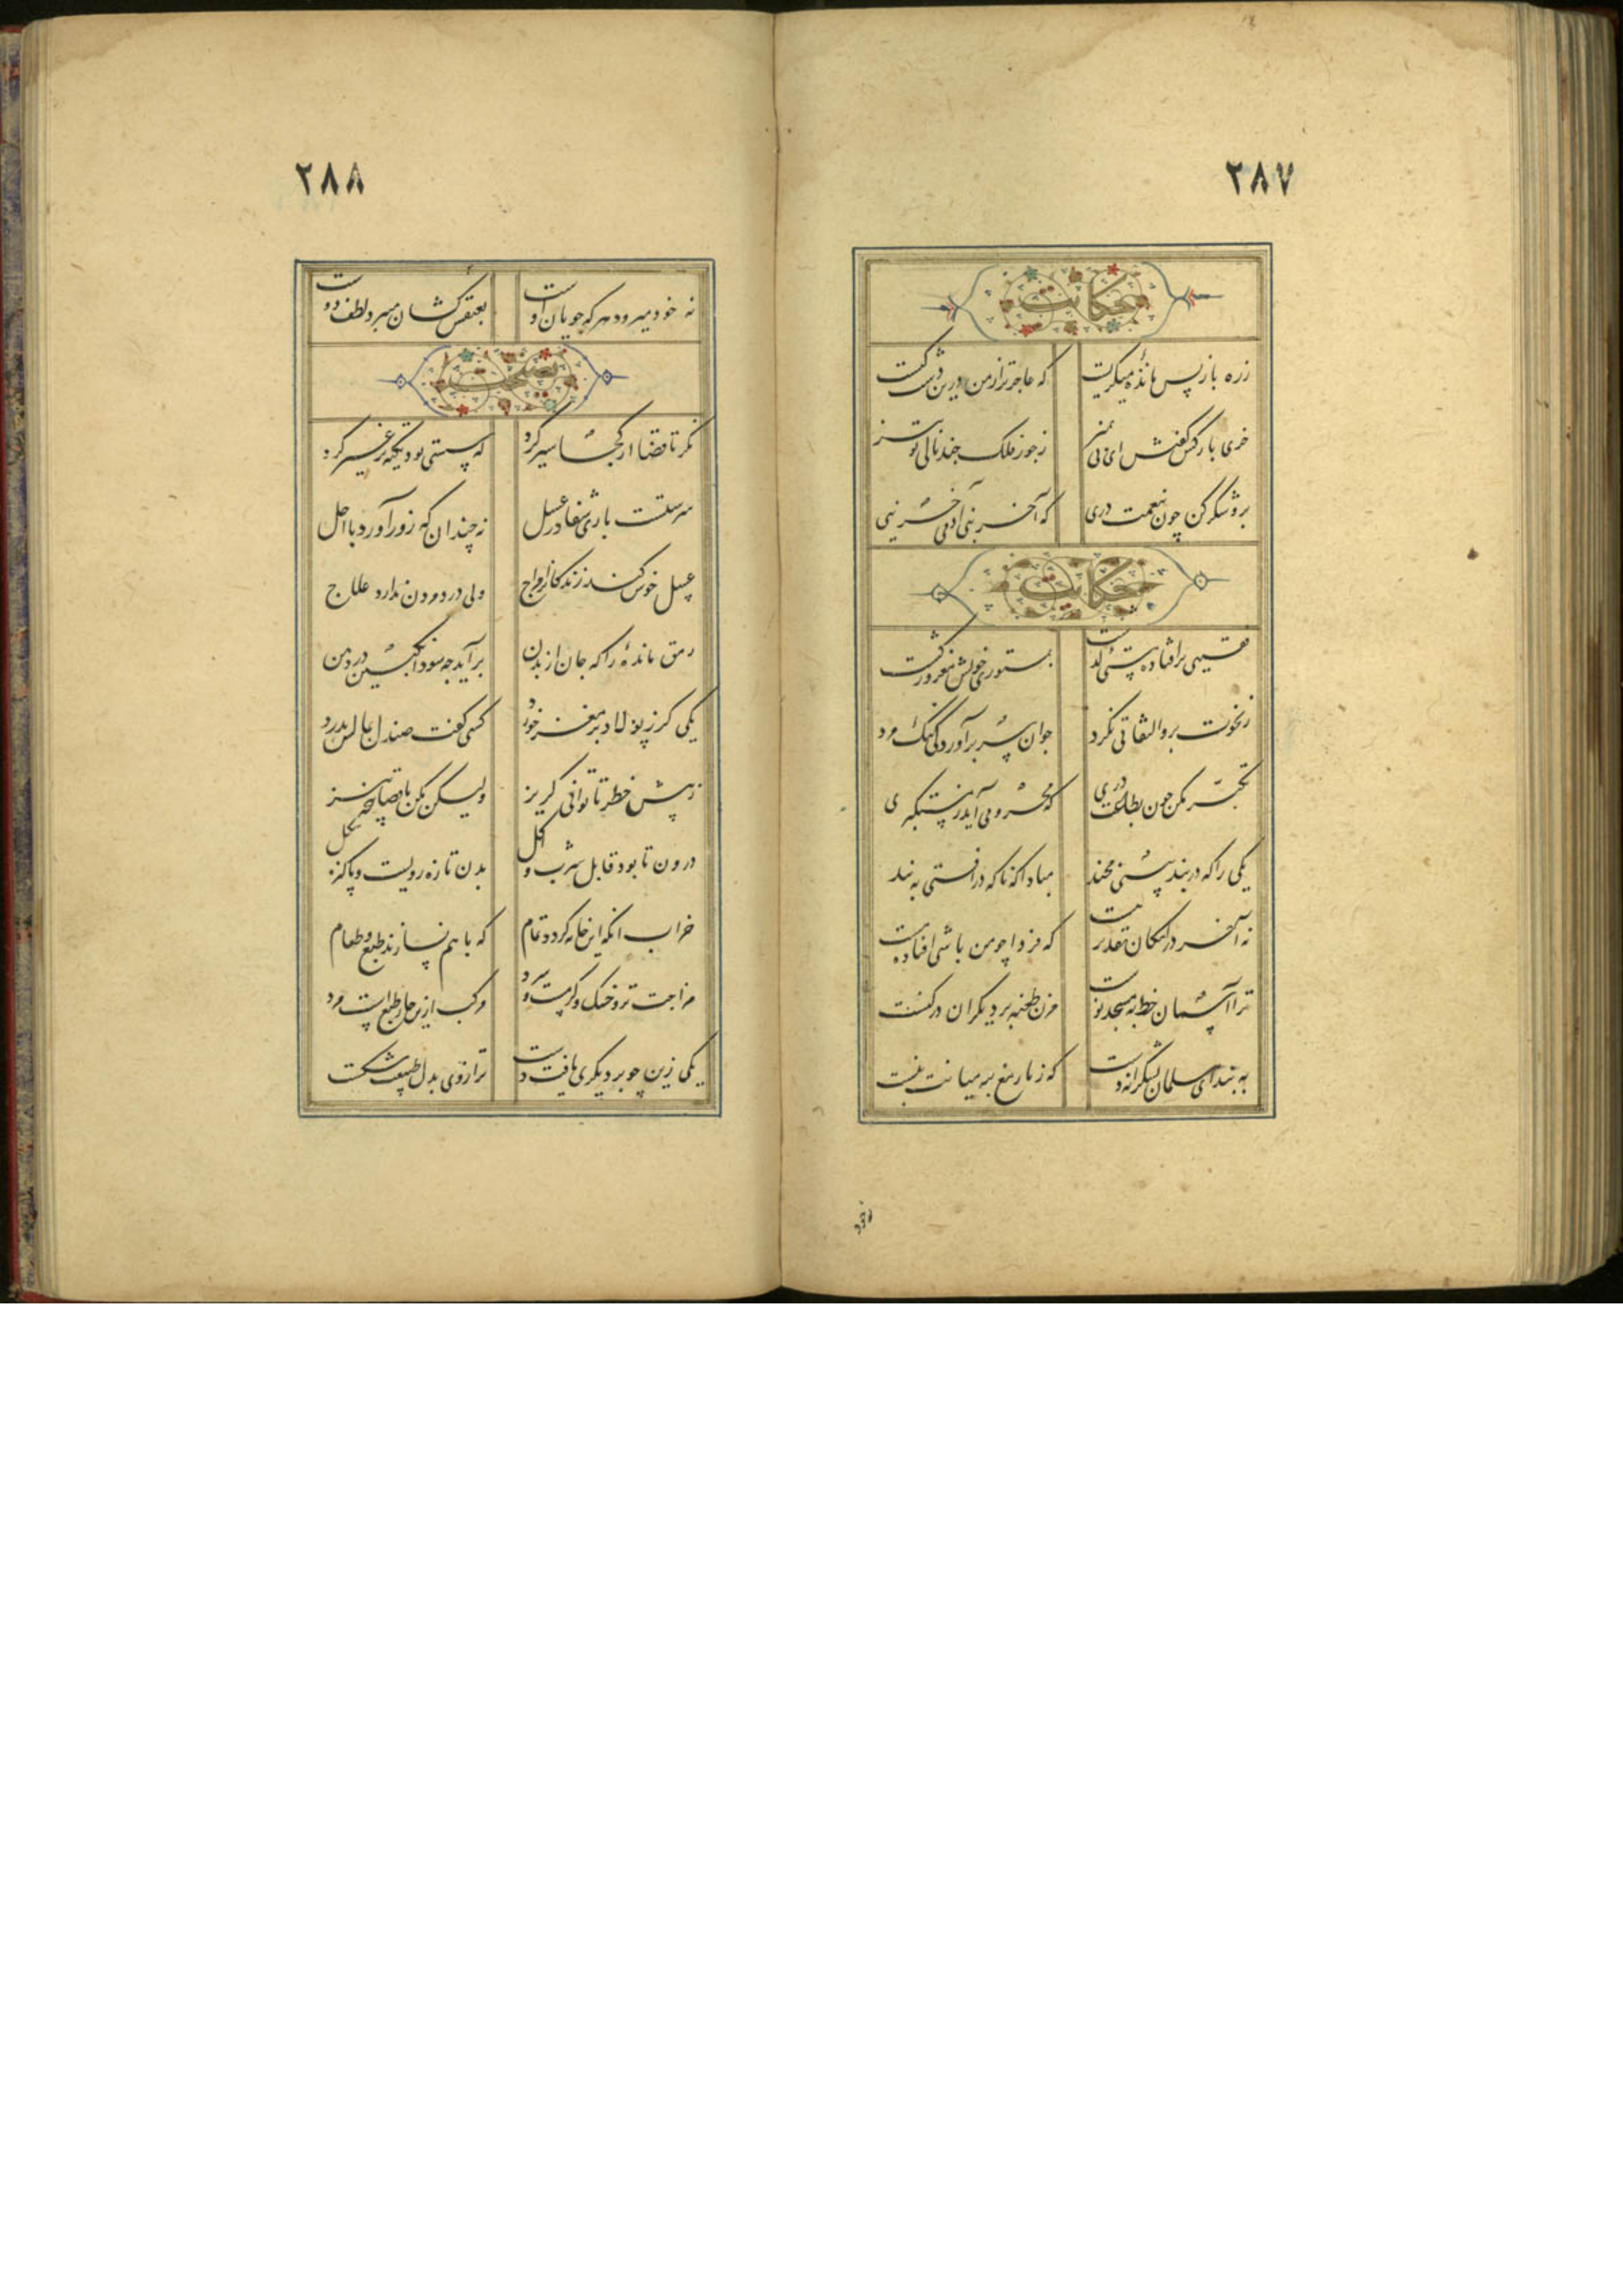 ۲۸۷
حکایت
زره باز پس مانده میگریست که عاجزتر از من درین دشت کیست
خری بارکش گفتش ای بی تمیز ز جور فلک چند نالی تو نیز
برو شکر کن چون نعمت دری که آخر بنی آدمی خر نیی
حکایت
فقیهی بر افتاده مستی گذشت بمستوری خویش مغرور گشت
ز نخوت برو التفاتی نکرد جوان سر برآورد کی نیک مرد
تکبر مکن چون بطاعت دری که محرومی آید ز مستکبری
یکی را که در بند بینی مخند مبادا که ناگه در افتی به بند
نه آخر در امکان تقدیر هست که فردا چو من باشی افتاده مست
ترا آسمان خط به مسجد نوشت مزن طعنه بر دیگران در کنشت
به بند ای مسلمان بشکرانه دست که زنار مغ بر میانت نبست
نه خود
۲۸۸
نه خود میرود هر که جویان اوست بعنفش کشان میبرد لطف دوست
نصیحت
نگر تا قضا از کجا سیر کرد که پستی بود تکیه بر غیر کرد
سرشتست باری شفا در عسل نه چندان که زور آورد با اجل
عسل خوش کند زندگانرا مزاج ولی درد مردن ندارد علاج
رمق مانده را که جان از بدن برآید چه سود انگبین در دهن
یکی گرز پولاد بر مغز خورد کسی گفت صندل بمالش بدرد
ز پیش خطر تا توانی گریز ولیکن مکن با قضا پنجه تیز
درون تا بود قابل شرب و اکل بدن تازه رویست و پاکیزه شکل
خراب انگه این خانه گردد تمام که با هم نسازند طبع و طعام
مزاجت تر و خشک و گرمست و سرد مرکب ازین چار طبع است مرد
یکی زین چو بر دیگری یافت دست ترازوی عدل طبیعت شکست